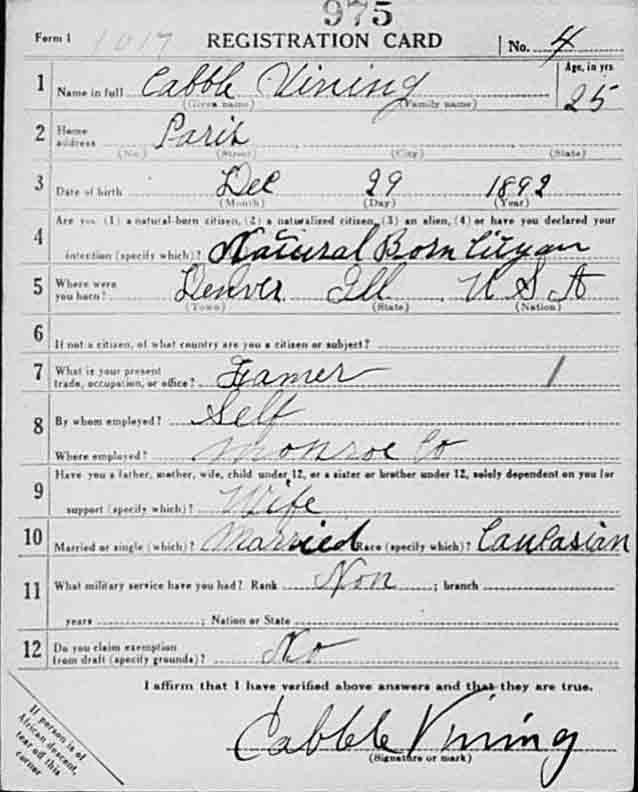 975
Form 1 1017 REGISTRATION CARD No. 4
1 Name in full Cabble Vining Age, in yrs. 25
(Given name) (Family name)
2 Home address Paris
(No.) (Street) (City) (State)
3 Date of birth Dec 29 1892
(Month) (Day) (Year)
4 Are you (1) a natural-born citizen, (2) a naturalized citizen, (3) an alien, (4) or have you declared your
intention (specify which)? Natural Born Cityzan
5 Where were you born? Denver Ill U S A
(Town) (State) (Nation)
6 If not a citizen, of what country are you a citizen or subject?
7 What is your present trade, occupation, or office? Framer 1
8 By whom employed? Self
Where employed? Monroe Co
9 Have you a father, mother, wife, child under 12, or a sister or brother under 12, solely dependent on you for
support (specify which)? Wife
10 Married or single (which)? Married Race (specify which)? Caucasian
11 What military service have you had? Rank Non ; branch
years ; Nation or State
12 Do you claim exemption from draft (specify grounds)? No
I affirm that I have verified above answers and that they are true.
Cabble Vining
(Signature or mark)
If person is of
African descent,
tear off this
corner